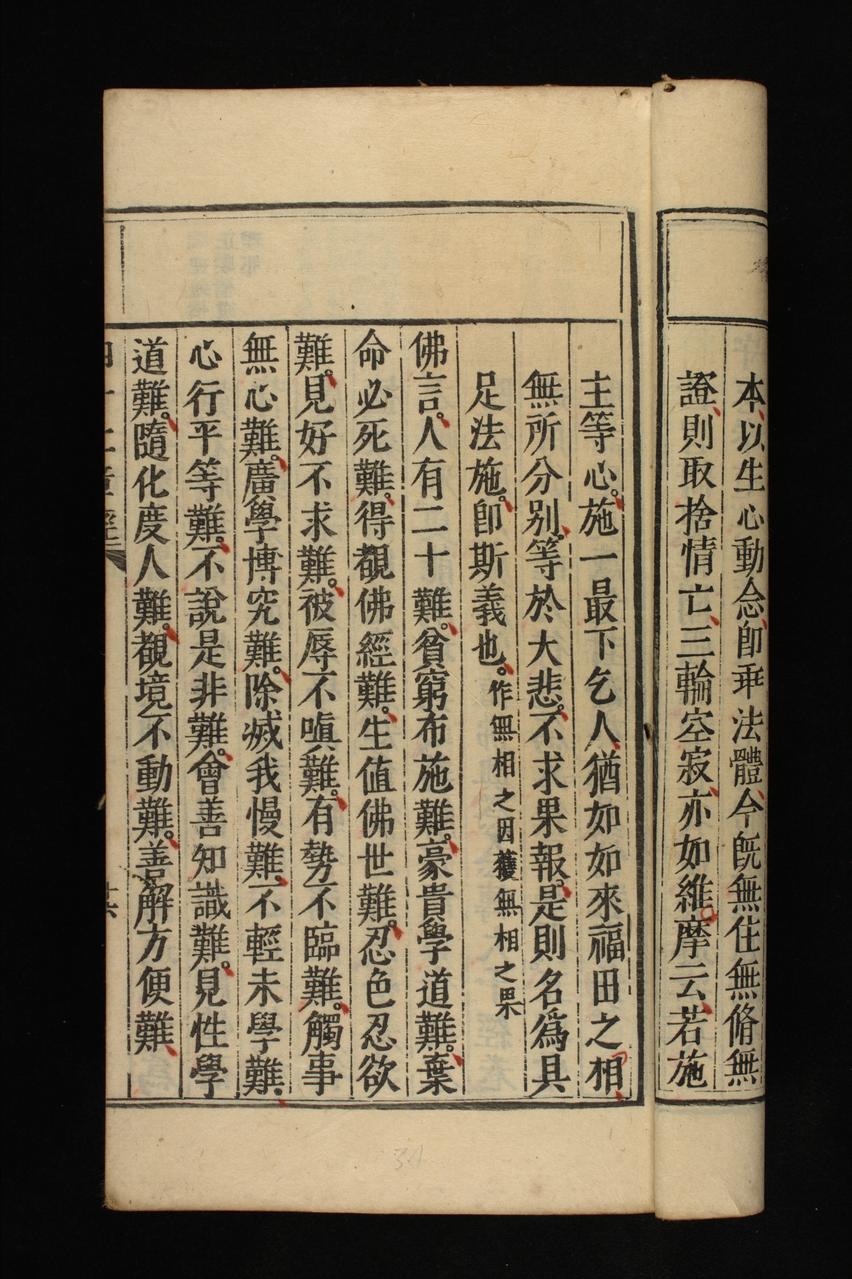 本以生心動念卽乖法體今旣無住無脩無
證則取捨情亡三輪空寂亦如維摩云若施
主等心施一最下乞人猶如如來福田之相
無所分别等於大悲不求果報是則名爲具
足法施卽斯義也作無相之因獲無相之果
佛言人有二十難貧窮布施難豪貴學道難棄
命必死難得覩佛經難生值佛世難忍色忍欲
難見好不求難被辱不嗔難有勢不臨難觸事
無心難廣學博究難除滅我慢難不輕未學難
心行平等難不說是非難會善知識難見性學
道難隨化度人難覩境不動難善解方便難
四十二章經
十六
34